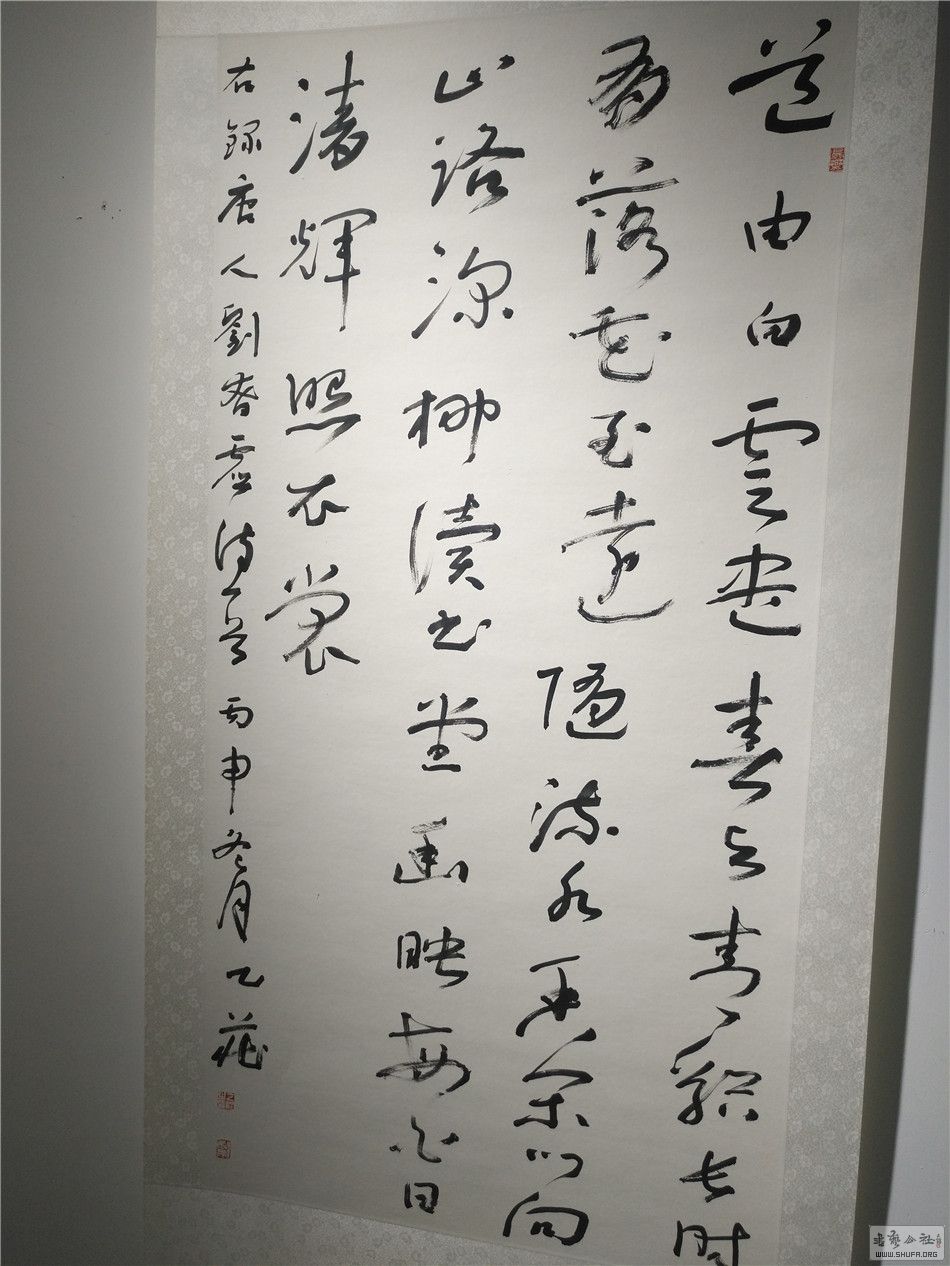 道由白雲盡春与青谿長時
有落花至遠隨流水香閑門向
山路深柳讀書堂幽映每白日
清輝照衣裳
右錄唐人劉眘虛詩一首 丙申冬月 乙莊
書藝公社
WWW.SHUFA.ORG